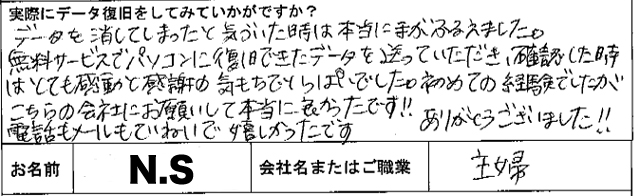 実際にデータ復旧をしてみていかがですか？
データを消してしまったと気づいた時は本当に手がふるえました。
無料サービスでパソコンに復旧できたデータを送っていただき、確認した時
はとても感動と感謝の気もちでいっぱいでした。初めての経験でしたが
こちらの会社にお願いして本当に良かったです!!
電話もメールもていねいで嬉しかったです ありがとうございました!!
お名前 N.S 会社名またはご職業 主婦